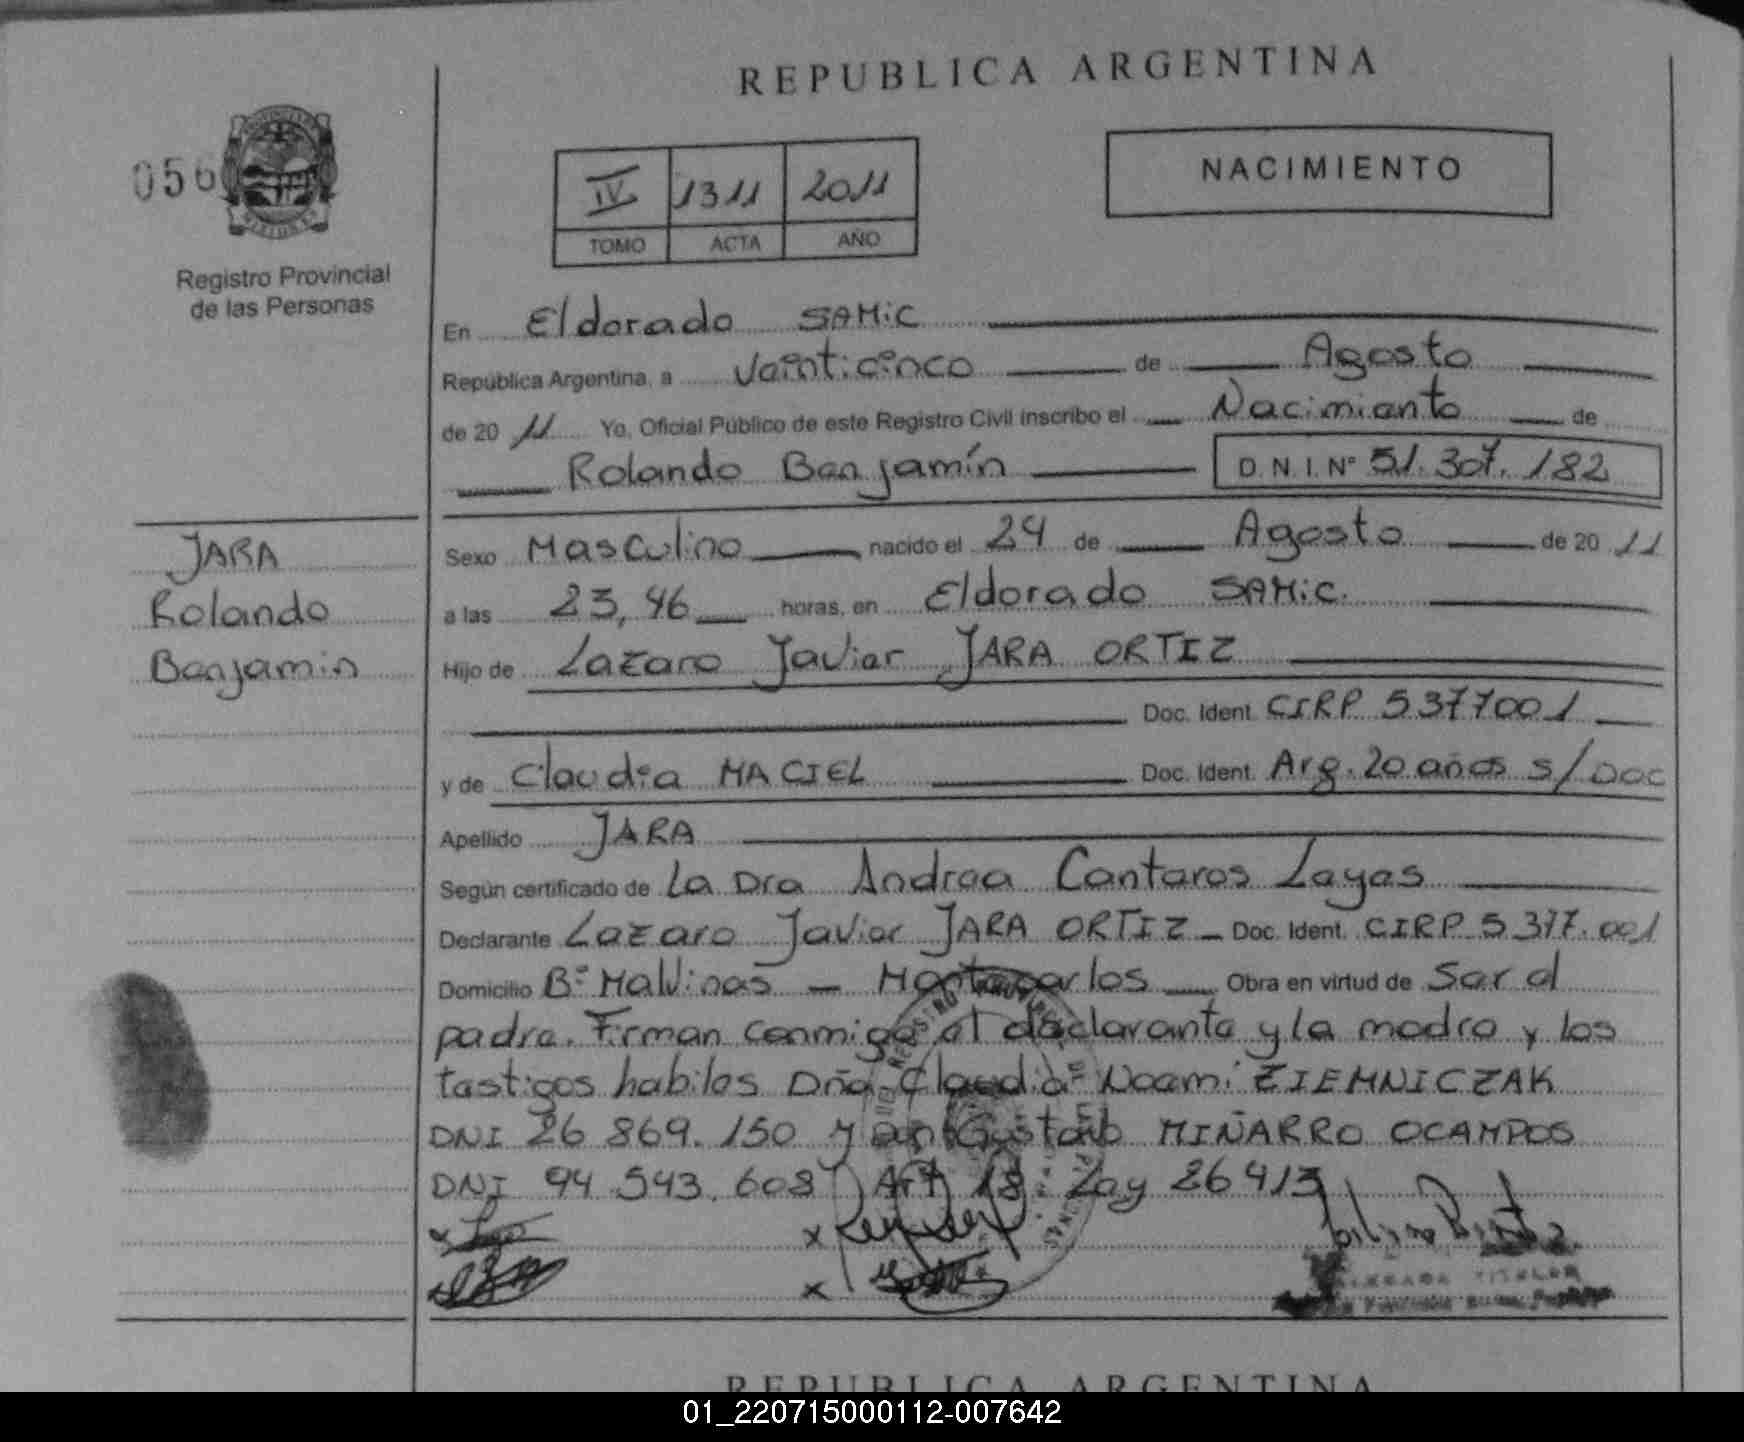 REPUBLICA ARGENTINA
056
IV 1311 2011
TOMO ACTA AÑO
NACIMIENTO
Registro Provincial
de las Personas
En Eldorado SAMiC
República Argentina, a Veinticinco de Agosto
de 20 11 Yo, Oficial Público de este Registro Civil inscribo el Nacimiento de
Rolando Benjamín D.N.I.Nº 51.307.182
JARA
Rolando
Benjamin
Sexo Masculino nacido el 24 de Agosto de 20 11
a las 23,46 horas, en Eldorado SAMiC.
Hijo de Lazaro Javier JARA ORTIZ
Doc. Ident. CIRP 5377001
y de Claudia MACIEL Doc. Ident. Arg. 20 años s/Doc
Apellido JARA
Según certificado de La Dra Andrea Cantaros Layes
Declarante Lazaro Javier JARA ORTIZ Doc. Ident. CIRP 5377.001
Domicilio Bº Malvinas - Montecarlos Obra en virtud de Ser el
padre. Firman conmigo el declarante y la madre y los
testigos habiles Dña Claudia Noemi ZIEMNICZAK
DNI 26 869.150 y Gustavo MIÑARRO OCAMPOS
DNI 94 543.608 Art 18 Ley 26413
x
x
x
REPUBLICA ARGENTINA
01_220715000112-007642